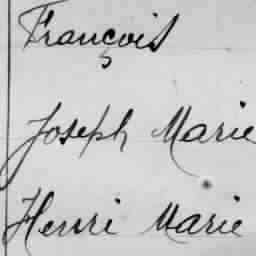 François
Joseph Marie
Henri Marie